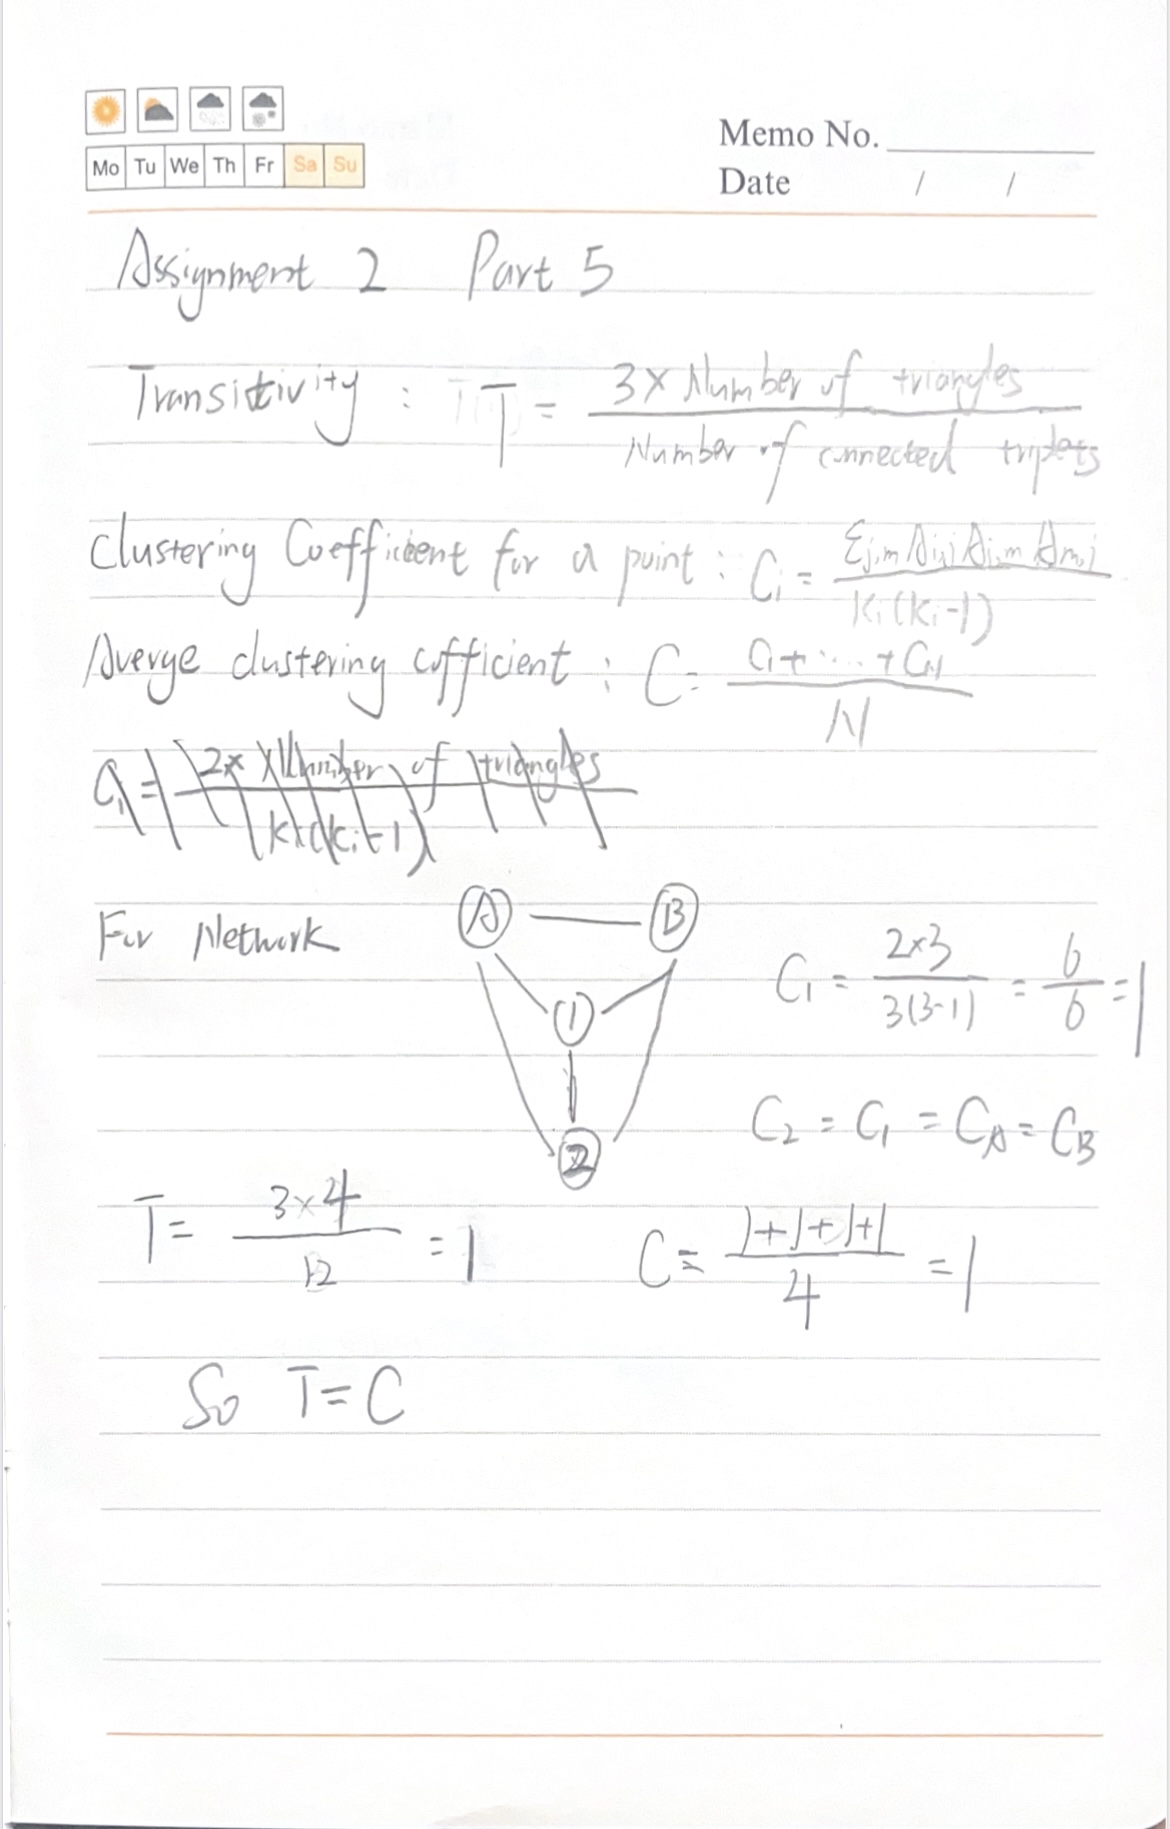 Mo Tu We Th Fr Sa Su
Memo No.
Date / /
Assignment 2 Part 5
Transitivity : T = 3× Number of triangles / Number of connected triplets
Clustering Coefficient for a point : Ci = Σj,m Ai,j Ai,m Am,j / Ki(Ki-1)
Averge clustering cofficient : C = C1+...+CN / N
For Network
A B
1
2
C1 = 2×3 / 3(3-1) = 6/6 = 1
C2 = C1 = CA = CB
T = 3×4 / 12 = 1
C = 1+1+1+1 / 4 = 1
So T=C